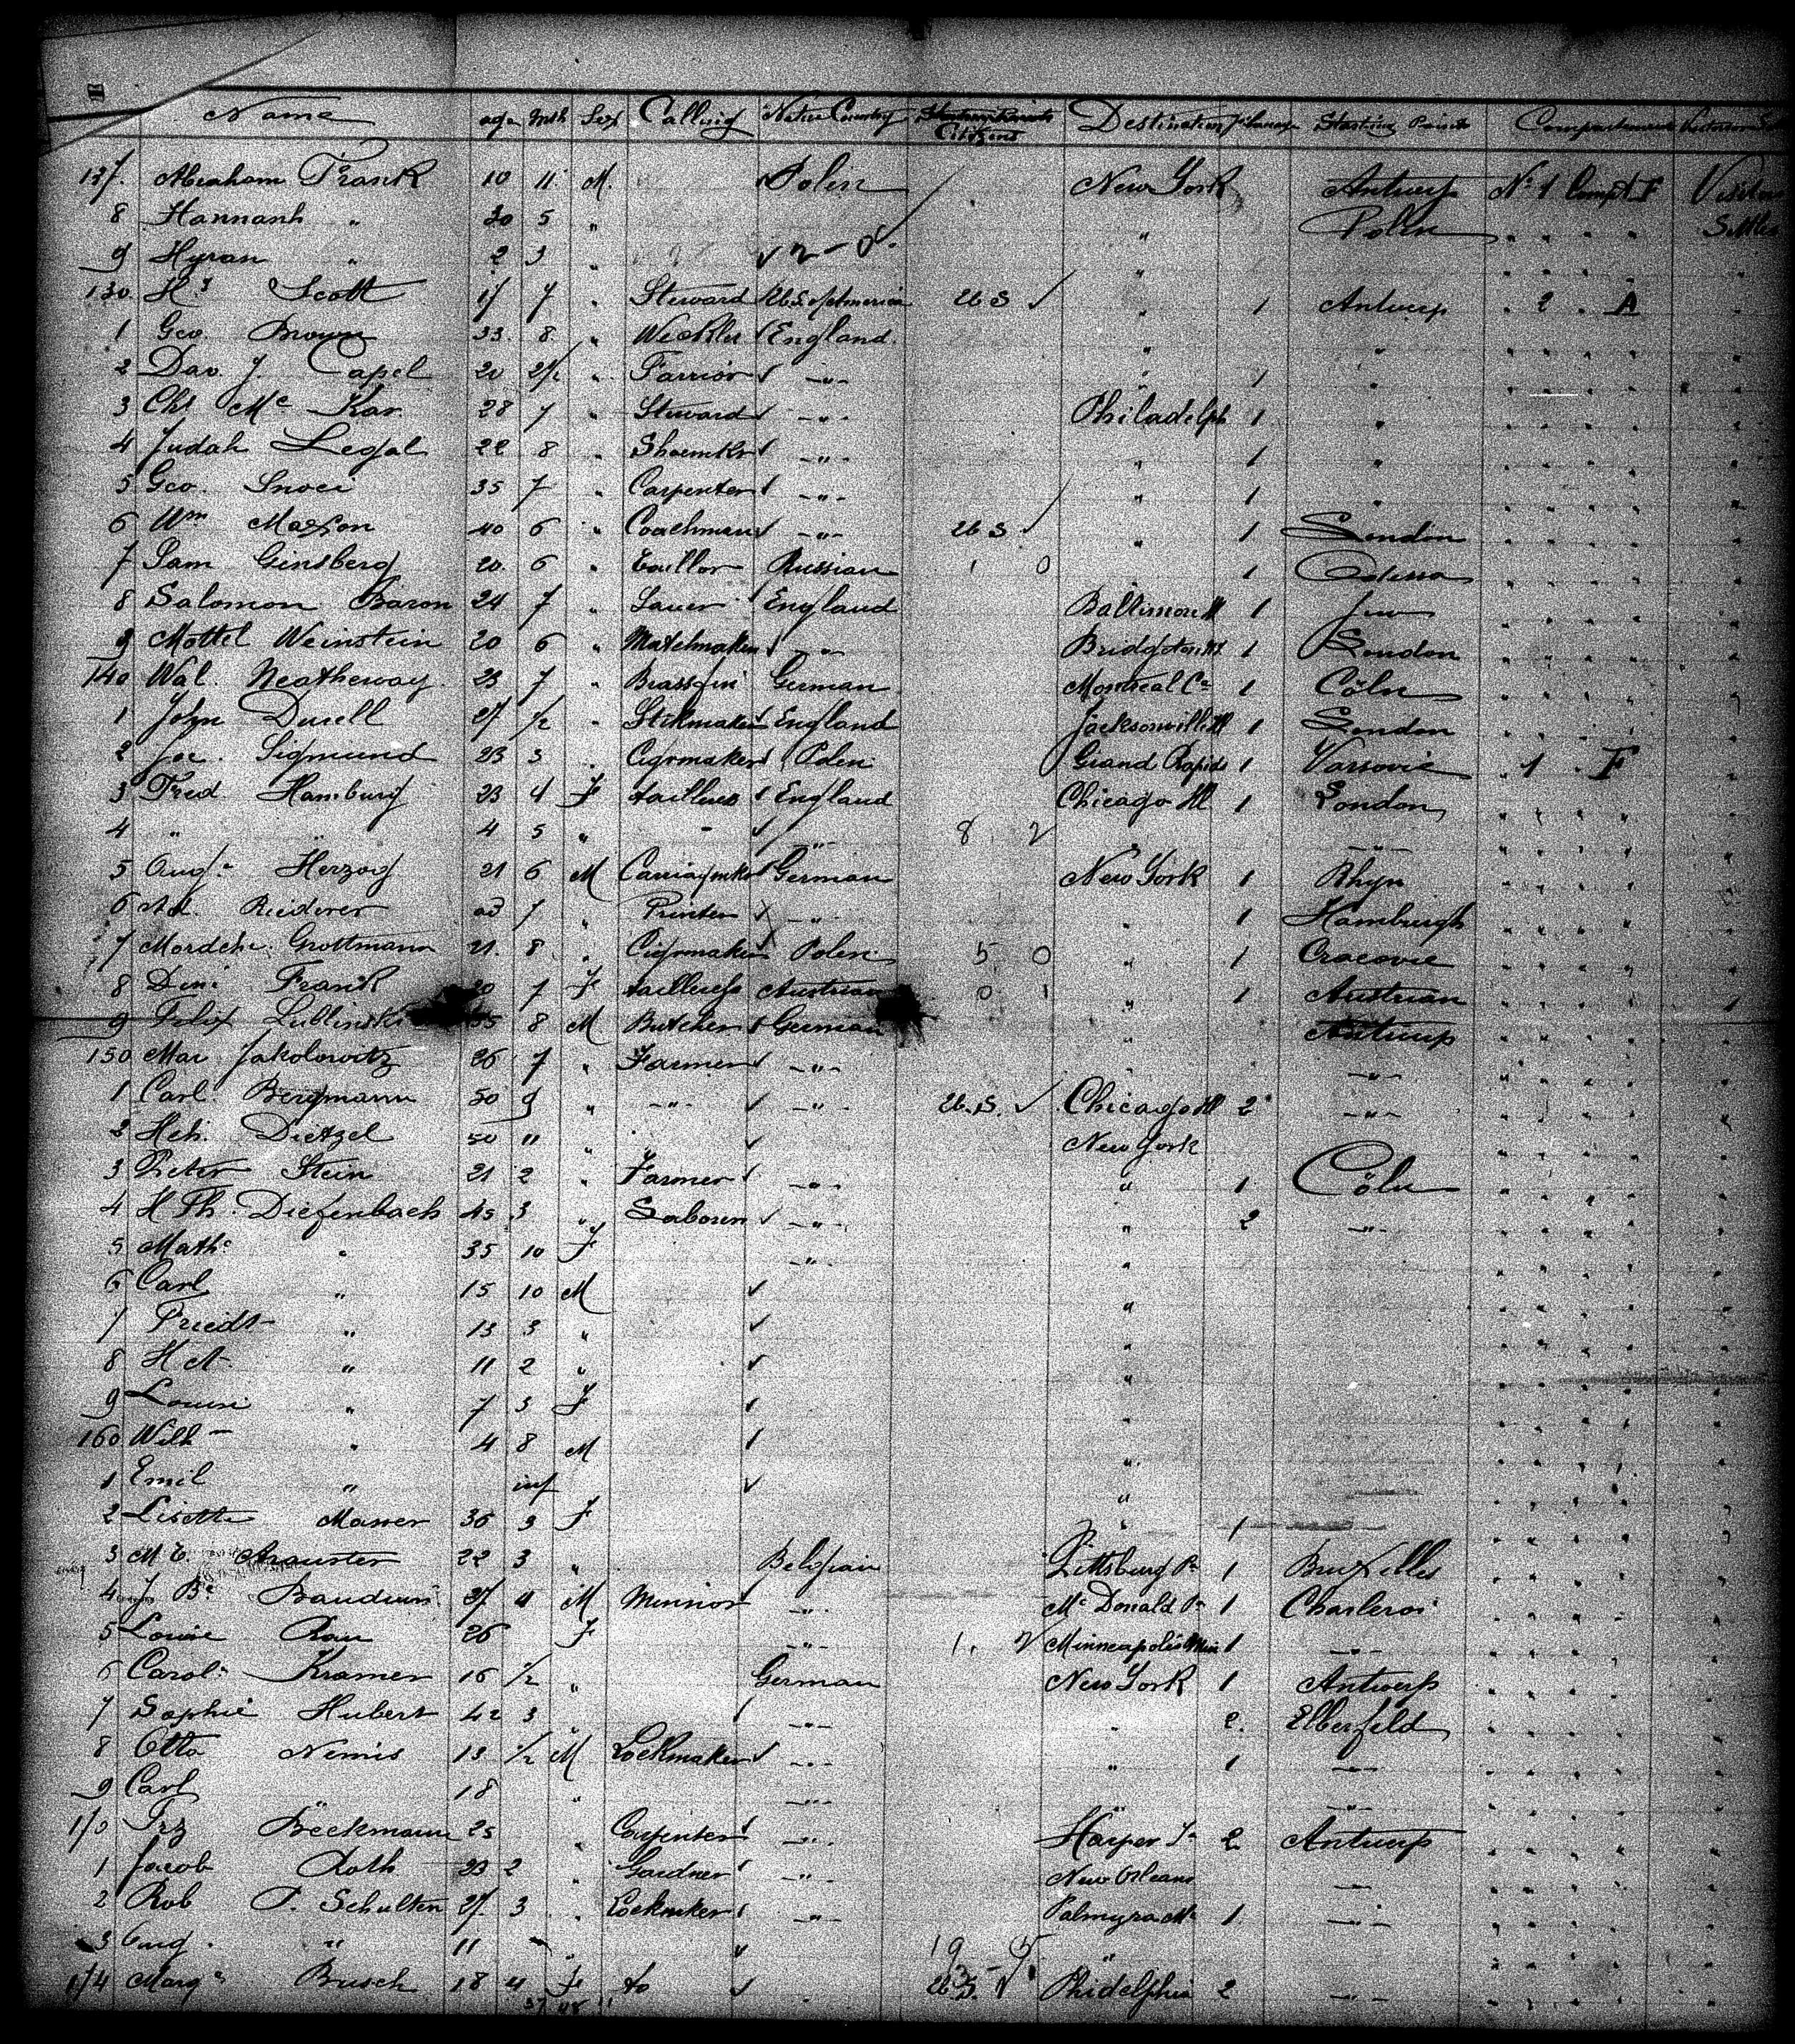 Name age Mth Sex Calling Native Country Citizens Destination Starting Point Compartement
127. Abraham Frank 10 11 M. Polen New York Antwerp No 1 Compt F
8 Hannanh " 30 5 " " Polen " " " " Settler
9 Hyran " 2 3 " " " " " "
130. Scott 17 7 " Steward U.S. of America U S " 1 Antwerp " 2 " A "
1 Geo. Brown 33. 8. " England. " " " " " " "
2 Dav. J. Capel 20 2/2 " Farrior -"- " 1 " " " " " "
3 Chs Mc Kar 28 7 " Steward -"- Philadelph 1 " " " " " "
4 Judah Legal 22 8 " Shoemkr -"- " 1 " " " " " "
5 Geo. Snoei 35 7 " Carpenter -"- " 1 " " " " " "
6 Wm Maxson 40 6 " Coachman -"- U S " 1 London " " " " "
7 Sam Ginsberg 20. 6 " Taillor Russian 1 0 1 Odessa " " " " "
8 Salomon Baron 24 7 " England Baltimore 1 " " " " "
9 Mottel Weinstein 20 6 " Matchmaker -"- 1 London " " " " "
140 Wal. Neatheway 23 7 " German Montreal Ca 1 Cöln " " " " "
1 John Durell 27 1/2 " Stikmaker England Jacksonville Ill 1 London " " " " "
2 Joe. Sigmund 23 3 " Cigrmaker Polen Grand Rapids 1 Varsovie " 1 " F "
3 Fred. Hamburg 23 4 F taillress England Chicago Ill 1 London " " " " "
4 " " 4 5 " - -"- 8 2 " -"- " " " " "
5 Augt Herzog 21 6 M Carriagmkr German New York 1 Rhyn " " " " "
6 Ad. Riederer 7 " Printer -"- " 1 Hamburgh " " " " "
7 Mordch. Grottmann 21. 8 " Cigrmaker Polen 5 0 " 1 Cracovie " " " " "
8 Frank 20 7 F tailleress Austrian 0 1 " 1 Austrian " " " " "
9 Felix Lublinski 8 M Butcher German " Antwerp " " " " "
150 Mar Jakolowitz 26 7 " Farmer -"- " -"- " " " " "
1 Carl. Bergmann 50 9 " -"- -"- U.S. Chicago Ill 2 -"- " " " " "
2 Hch. Dietzel 50 " " New York " " " " "
3 Pieter Stein 21 2 " Farmer -"- " 1 Cöln " " " " "
4 H Th. Diefenbach 45 3 " Laborer -"- " 2 -"- " " " " "
5 Mathe " 35 10 F -"- " " " " " "
6 Carl " 15 10 M " " " " " "
7 Friedr " 13 3 " " " " " " "
8 H A " 11 2 " " " " " " "
9 Louise " 7 3 F " " " " " "
160 Wilh " 4 8 M " " " " " "
1 Emil " inf " " " " " "
2 Lisette Masser 36 3 F " 1 " " " " "
3 M E. 22 3 " Belgian Pittsburg Pa 1 Bruxelles " " " " "
4 J Be Bauduin 27 4 M Minnior -"- Mc Donald Pa 1 Charleroi " " " " "
5 Louise Rau 26 F -"- 1. 2 Minneapolis Min 1 -"- " " " " "
6 Carol. Kramer 16 1/2 " German New York 1 Antwerp " " " " "
7 Sophie Hubert 42 3 " -"- " 2. Elberfeld " " " " "
8 Otto Nemis 13 1/2 M Lockmaker -"- " 1 -"- " " " " "
9 Carl " 18 " -"- " -"- " " " " "
170 Frz Beekmann 25 " Carpenter -"- Harper 2 Antwerp " " " " "
1 Jacob Roth 23 2 " Gardner -"- New Orleans -"- " " " " "
2 Rob P. Schulten 27. 3 " Lockmker -"- Palmyra Mo 1 -"- " " " " "
3 Aug. " 11 " 19 " " " " " "
174 Marge Busch 18 4 F U.S. Phidelphia 2 -"- " " " " "